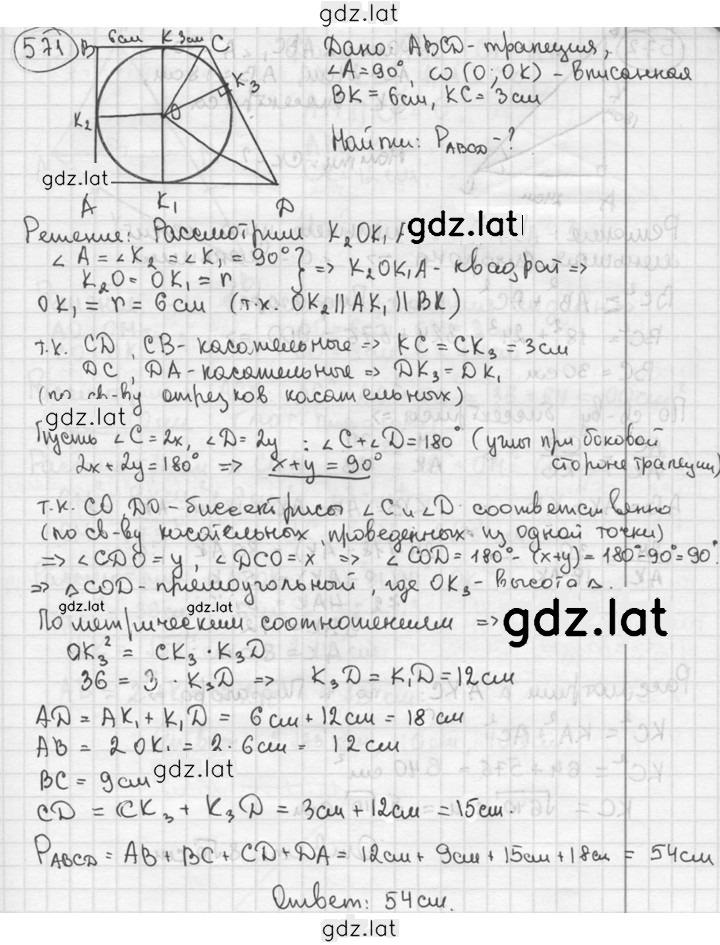 gdz.lat
571
B 6см K 3см C
K₃
K₂
O
A K₁ D
gdz.lat
Дано: ABCD - трапеция,
∠A = 90°, ω (O; OK) - вписанная
BK = 6см, KC = 3см
Найти: P_ABCD - ?
Решение: Рассмотрим K₂OK₁A
gdz.lat
∠A = ∠K₂ = ∠K₁ = 90°
K₂O = OK₁ = r
} => K₂OK₁A - квадрат =>
OK₁ = r = 6см (т.к. OK₂ ∥ AK₁ ∥ BK)
т.к. CD, CB - касательные => KC = CK₃ = 3см
DC, DA - касательные => DK₃ = DK₁
(по св-ву отрезков касательных)
gdz.lat
Пусть ∠C = 2x, ∠D = 2y : ∠C + ∠D = 180° (углы при боковой
2x + 2y = 180° => x + y = 90° стороне трапеции)
т.к. CO, DO - биссектрисы ∠C и ∠D соответственно
(по св-ву касательных, проведенных из одной точки)
=> ∠CDO = y, ∠DCO = x => ∠COD = 180° - (x+y) = 180° - 90° = 90°.
=> △COD - прямоугольный, где OK₃ - высота △.
gdz.lat gdz.lat
По метрическим соотношениям =>
gdz.lat
OK₃² = CK₃ · K₃D
36 = 3 · K₃D => K₃D = K₁D = 12см
AD = AK₁ + K₁D = 6см + 12см = 18см
AB = 2OK₁ = 2·6см = 12см
gdz.lat
BC = 9см
CD = CK₃ + K₃D = 3см + 12см = 15см.
P_ABCD = AB + BC + CD + DA = 12см + 9см + 15см + 18см = 54см
Ответ: 54см.
gdz.lat